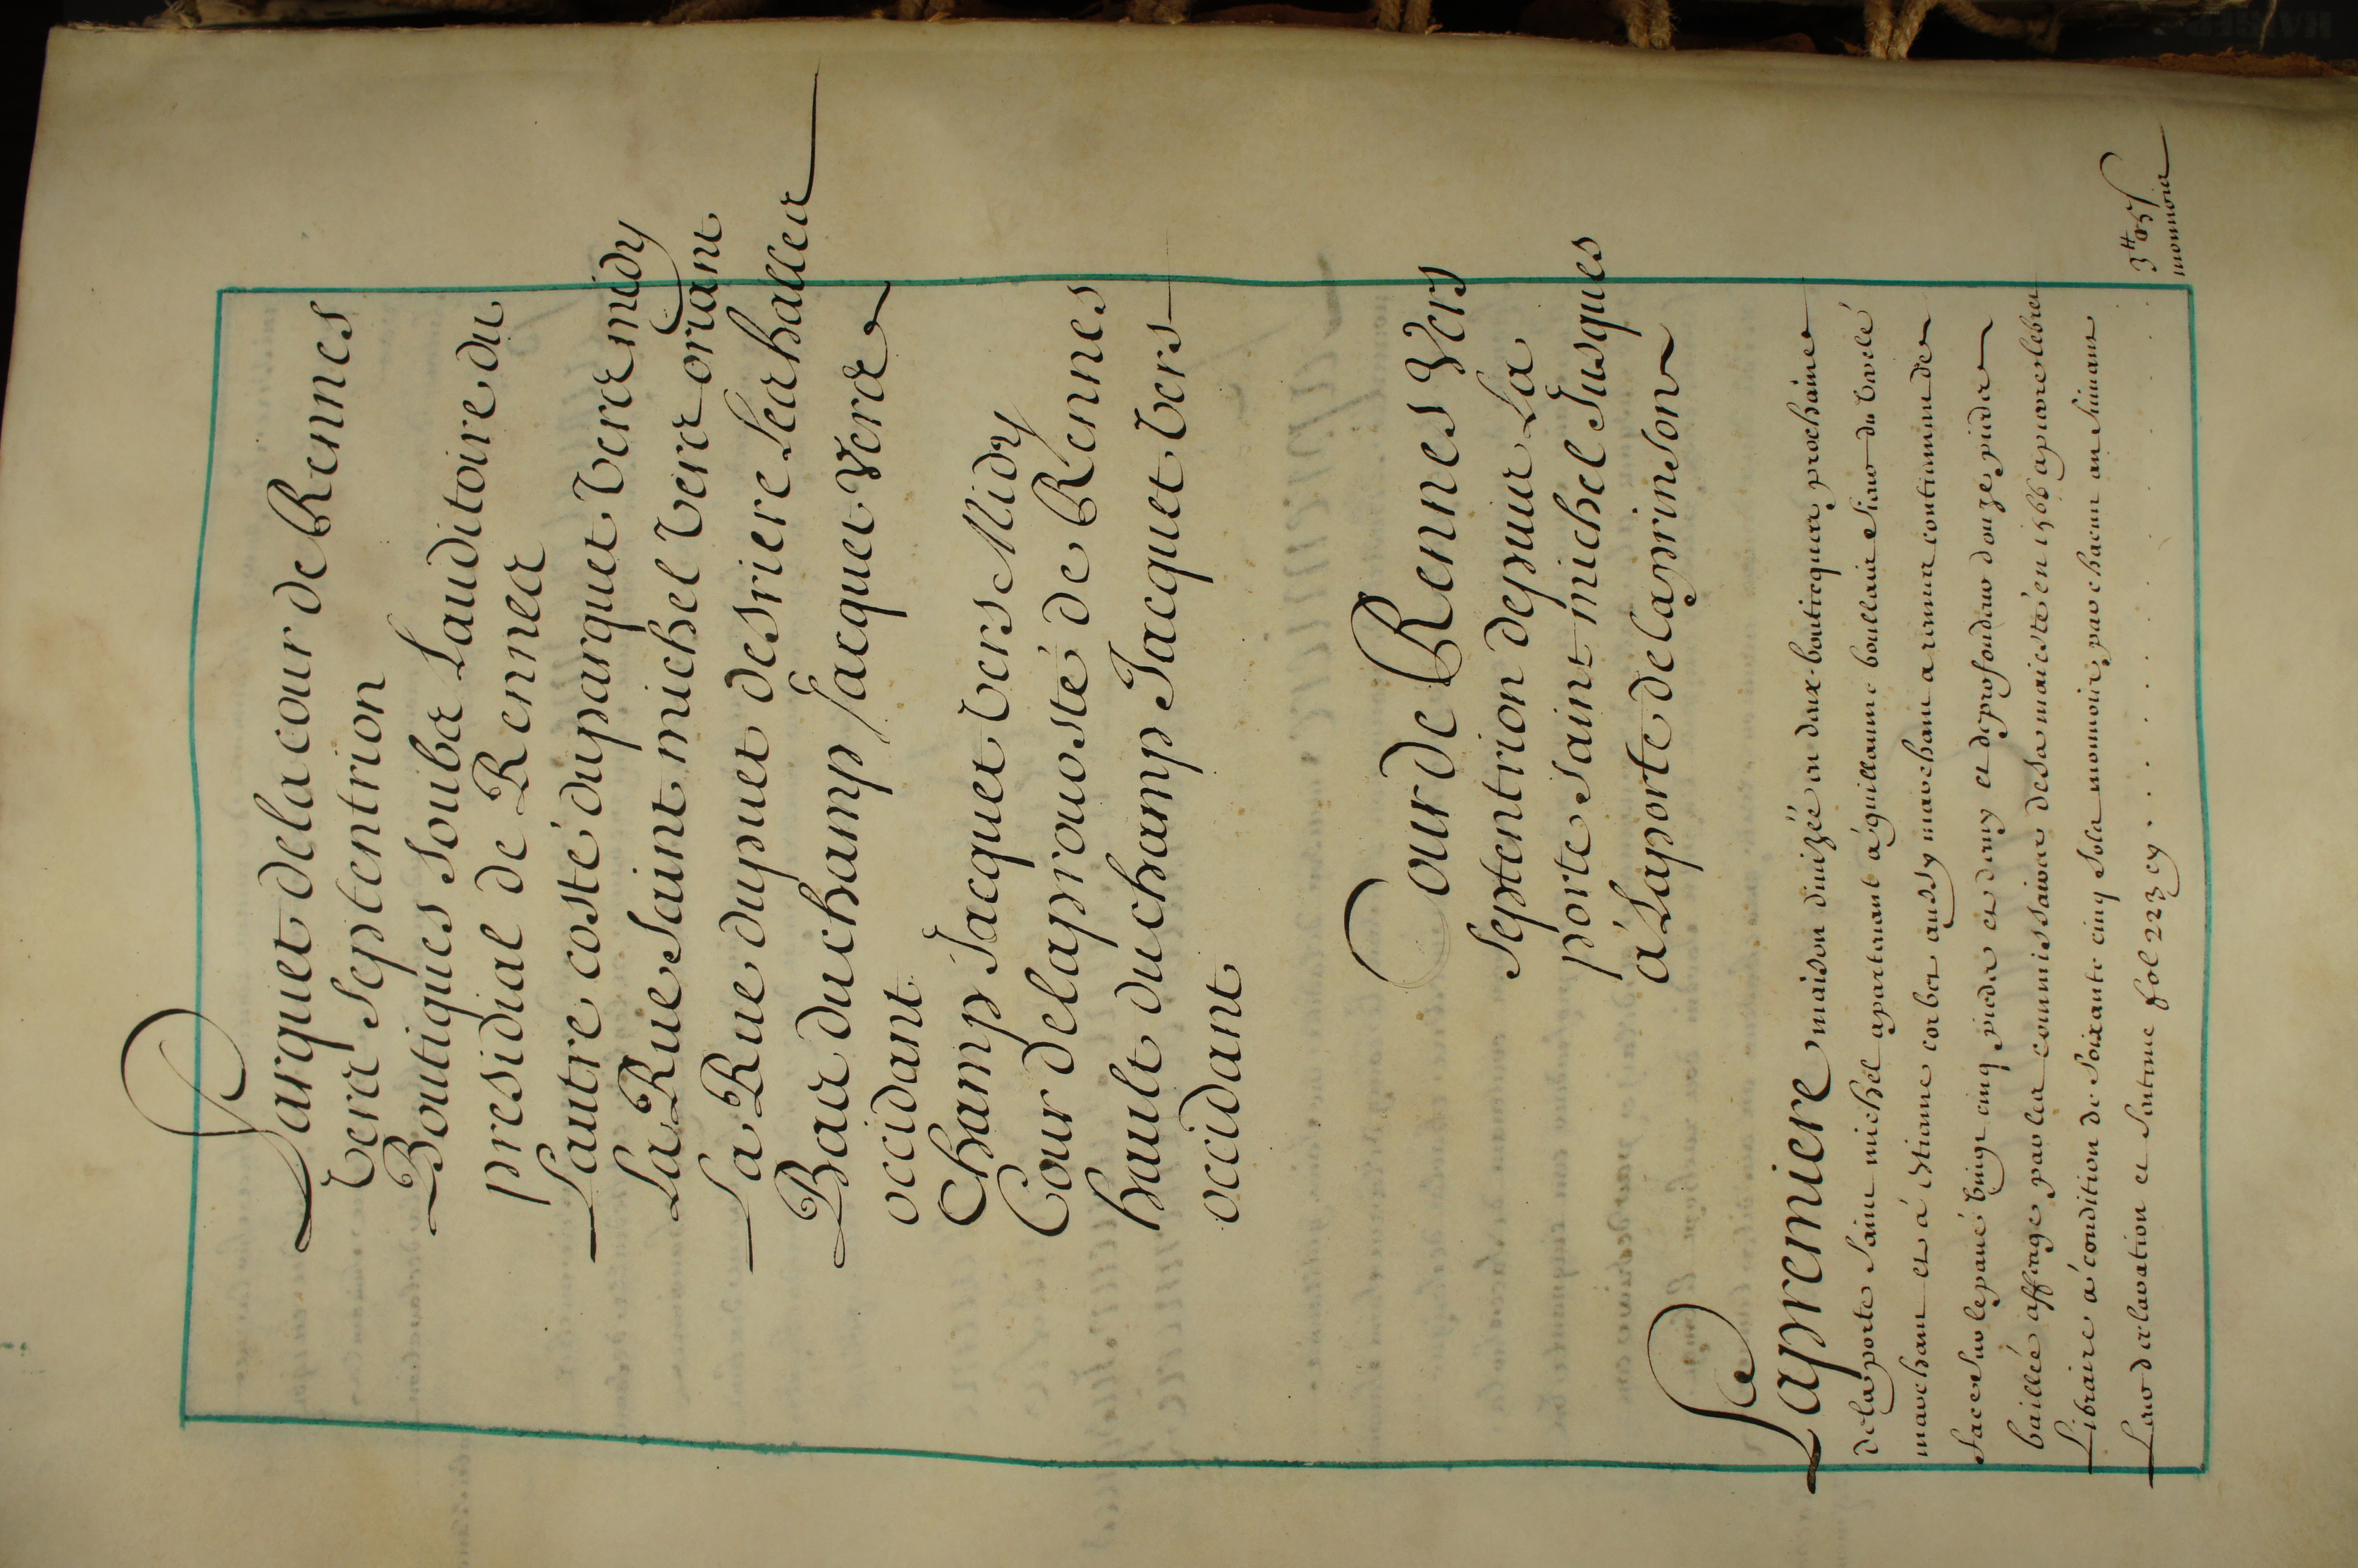 Parquet de la cour de Rennes
vers Septentrion
Boutiques soubz Lauditoire du
presidial de Rennes
Lautre costé du parquet vers midy
La Rue Saint michel vers oriant
La Rue du puet desriere Les halles
Bas du champ Jacquet vers
occidant
Champ Jacquet vers Midy
Cour de la prouosté de Rennes
hault du champ Jacquet vers
occidant
Cour de Rennes vers
Septentrion depuis La
porte Saint michel Jusques
a La porte de la prinson
La premiere maison diuizéé en deux bouticques prochaine
de la porte Saint michel apartenant a guillaume boullais Sieur du
marchant et a estienne corbet aussy marchant a rennes contienant de
face sur le paué vingt cinq pieds et demy et de profondeur douze pieds
baillée affeage par les commissaires de sa maiesté en 1566 a pierre lebret
Libraire a condition de Soixante cinq Sols monnoie par chacun an Suiuant
Leur declaration et Sentence fol 223 cy
3tt 05s
monnoie